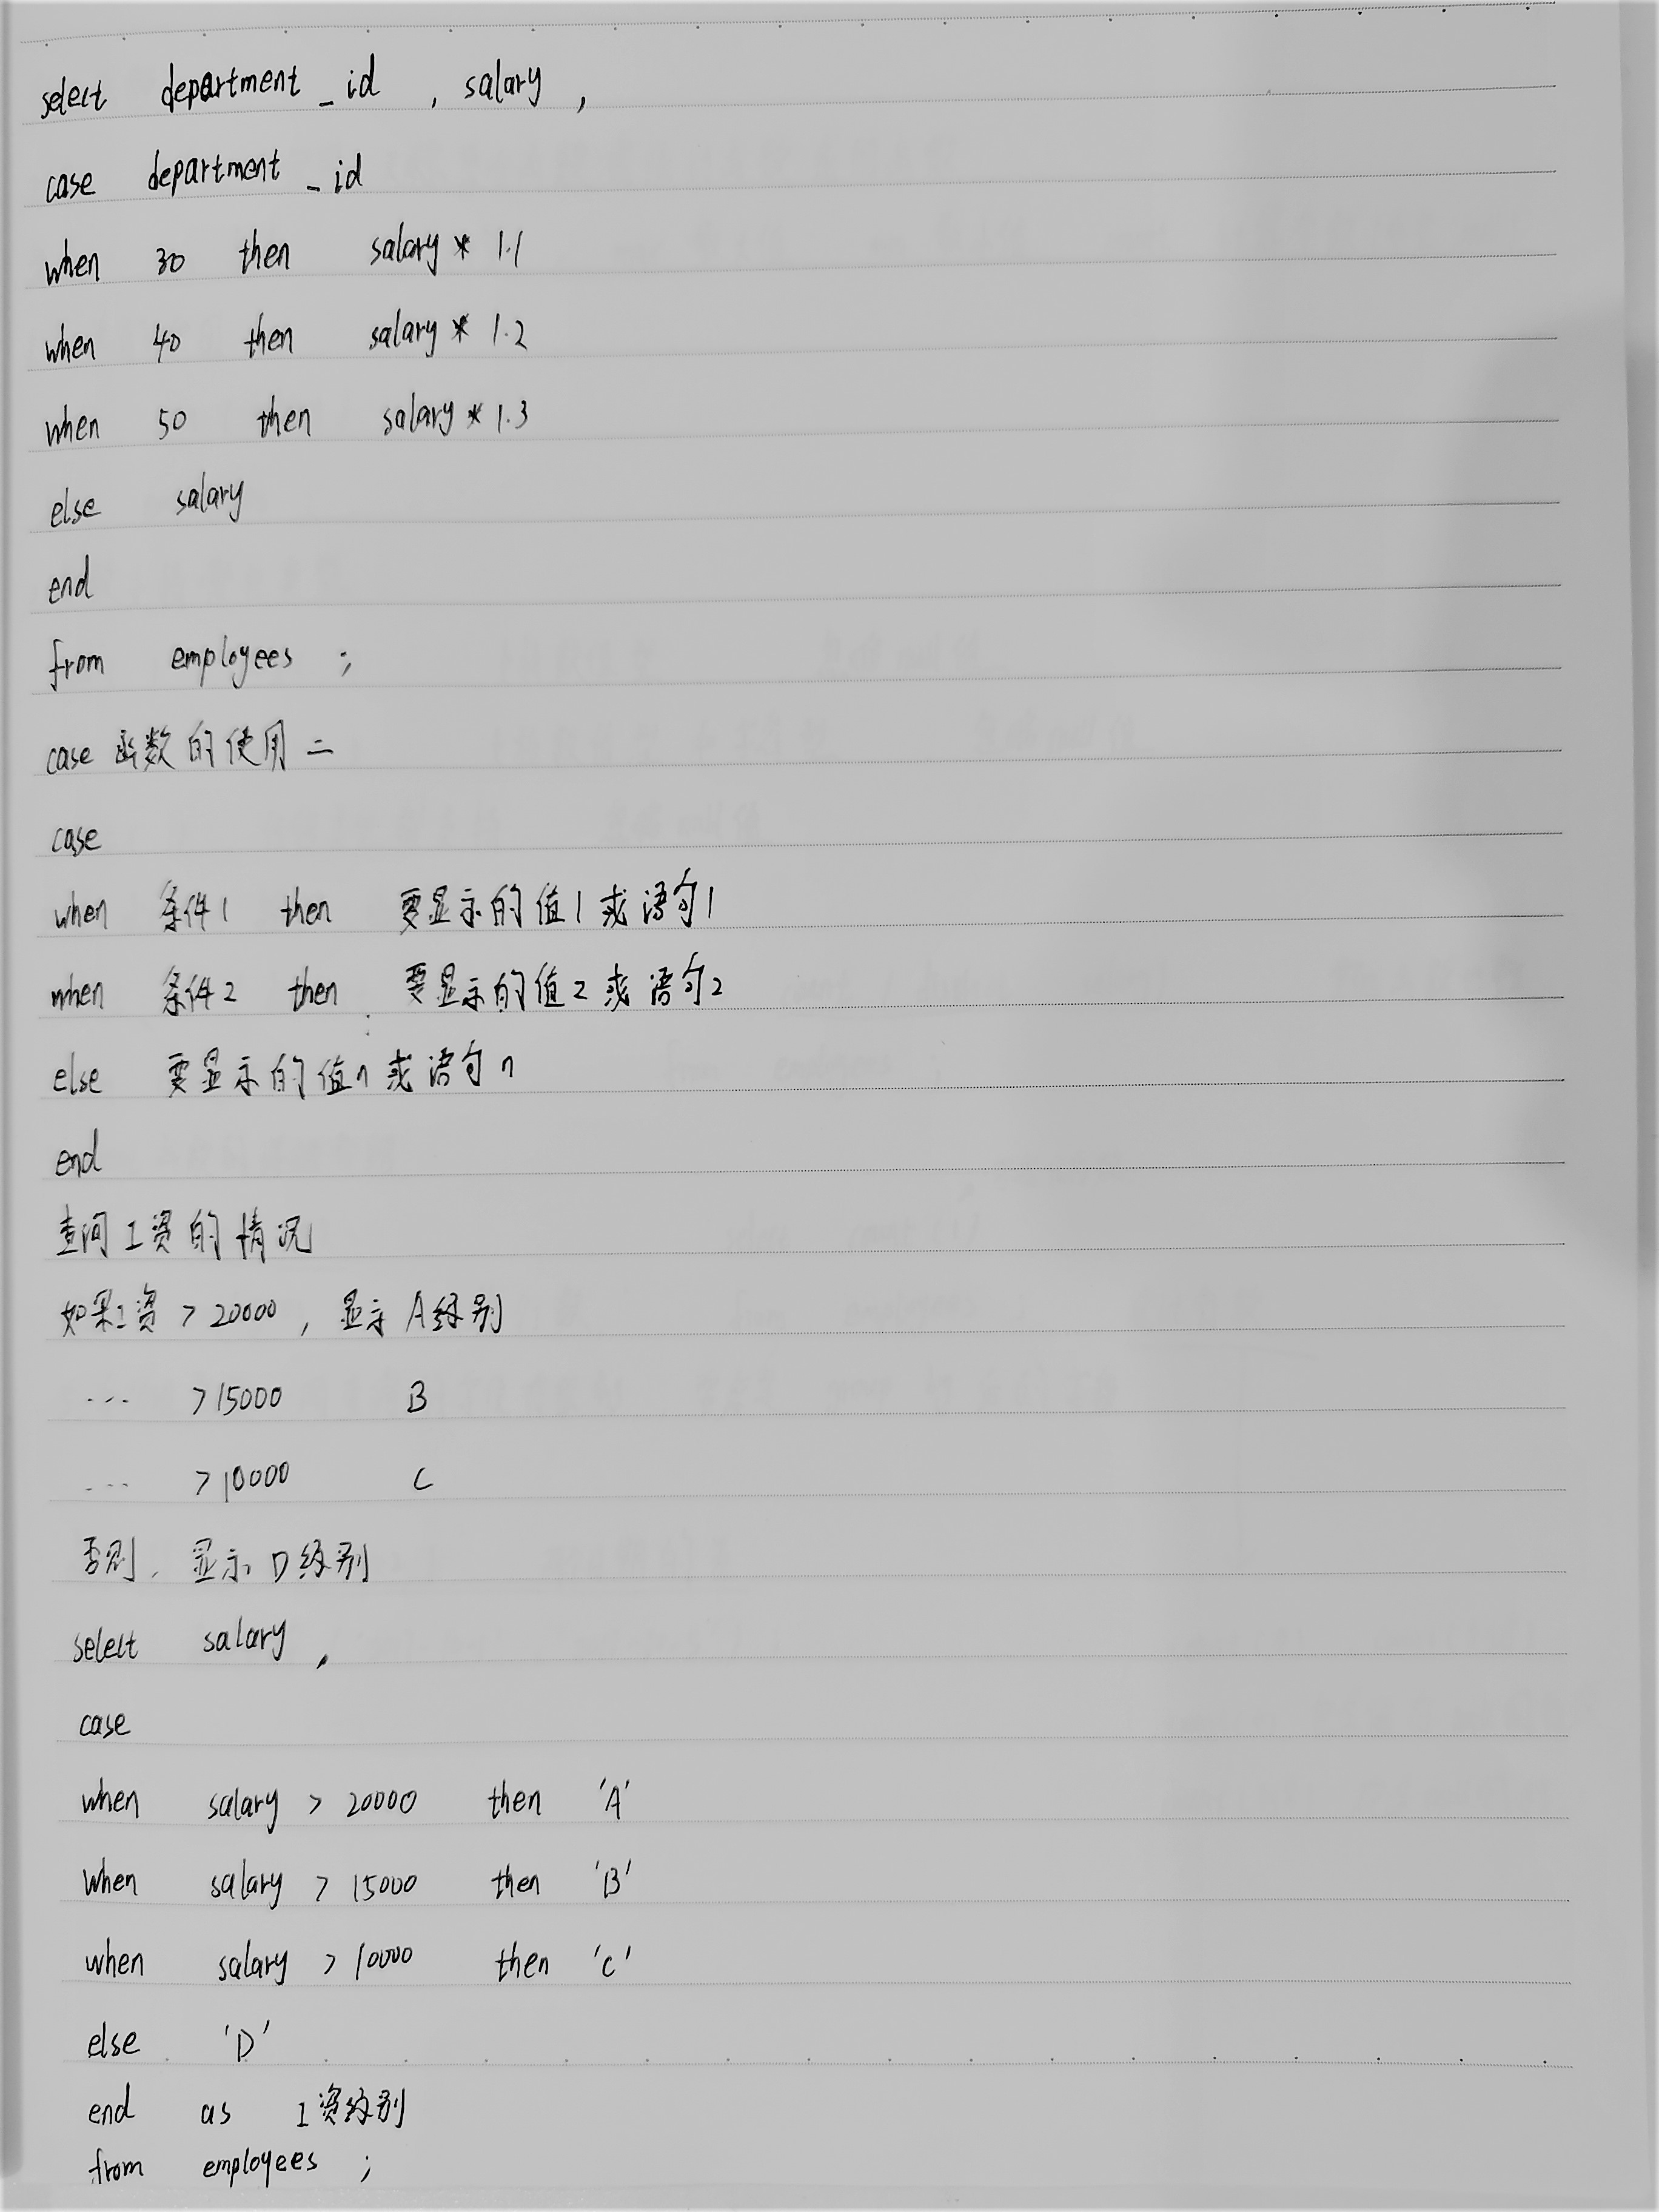 select department_id , salary ,
case department_id
when 30 then salary * 1.1
when 40 then salary * 1.2
when 50 then salary * 1.3
else salary
end
from employees ;
case 函数的使用二
case
when 条件1 then 要显示的值1或语句1
when 条件2 then 要显示的值2或语句2
else 要显示的值n或语句n
end
查询工资的情况
如果工资 > 20000 , 显示 A级别
... >15000 B
... >10000 C
否则, 显示 D级别
select salary ,
case
when salary > 20000 then 'A'
when salary > 15000 then 'B'
when salary > 10000 then 'C'
else 'D'
end as 工资级别
from employees ;